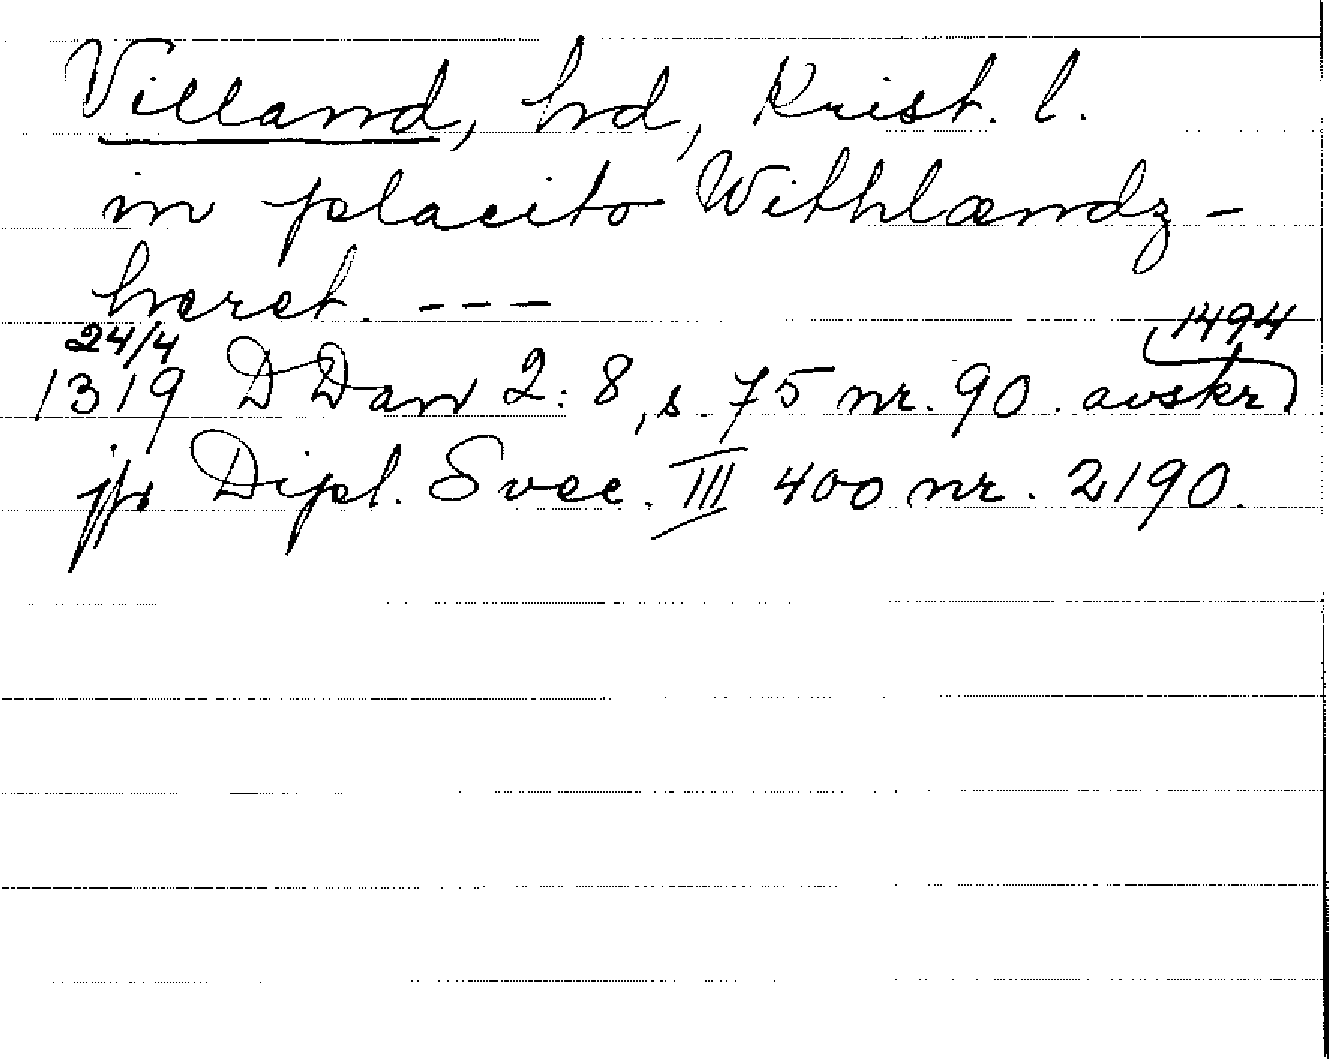 Villand, hd, Krist. l.
in placito Withlændz-
hæret. ---
24/4
1319 D Dan 2:8, s. 75 nr. 90. avskr
1494
jfr Dipl. Svec. III 400 nr. 2190.